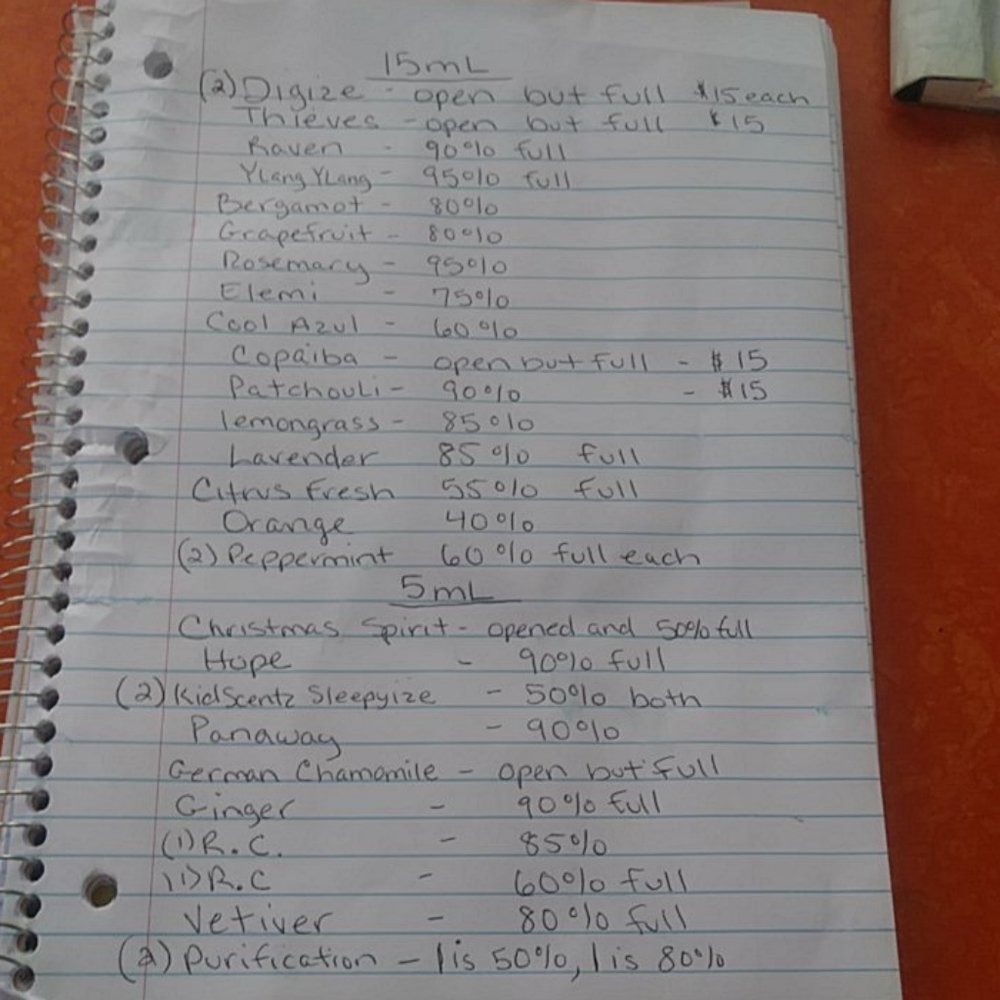 15mL
(2) Digize - open but full $15 each
Thieves - open but full $15
Raven - 90% full
Ylang Ylang - 95% full
Bergamot - 80%
Grapefruit - 80%
Rosemary - 95%
Elemi - 75%
Cool Azul - 60%
Copaiba - open but full - $15
Patchouli - 90% - $15
lemongrass - 85%
Lavender 85% full
Citrus Fresh 55% full
Orange 40%
(2) Peppermint 60% full each
5mL
Christmas Spirit - opened and 50% full
Hope - 90% full
(2) KidScentz Sleepyize - 50% both
Panaway - 90%
German Chamomile - open but full
Ginger - 90% full
(1) R.C. - 85%
(1) R.C - 60% full
Vetiver - 80% full
(2) Purification - 1 is 50%, 1 is 80%